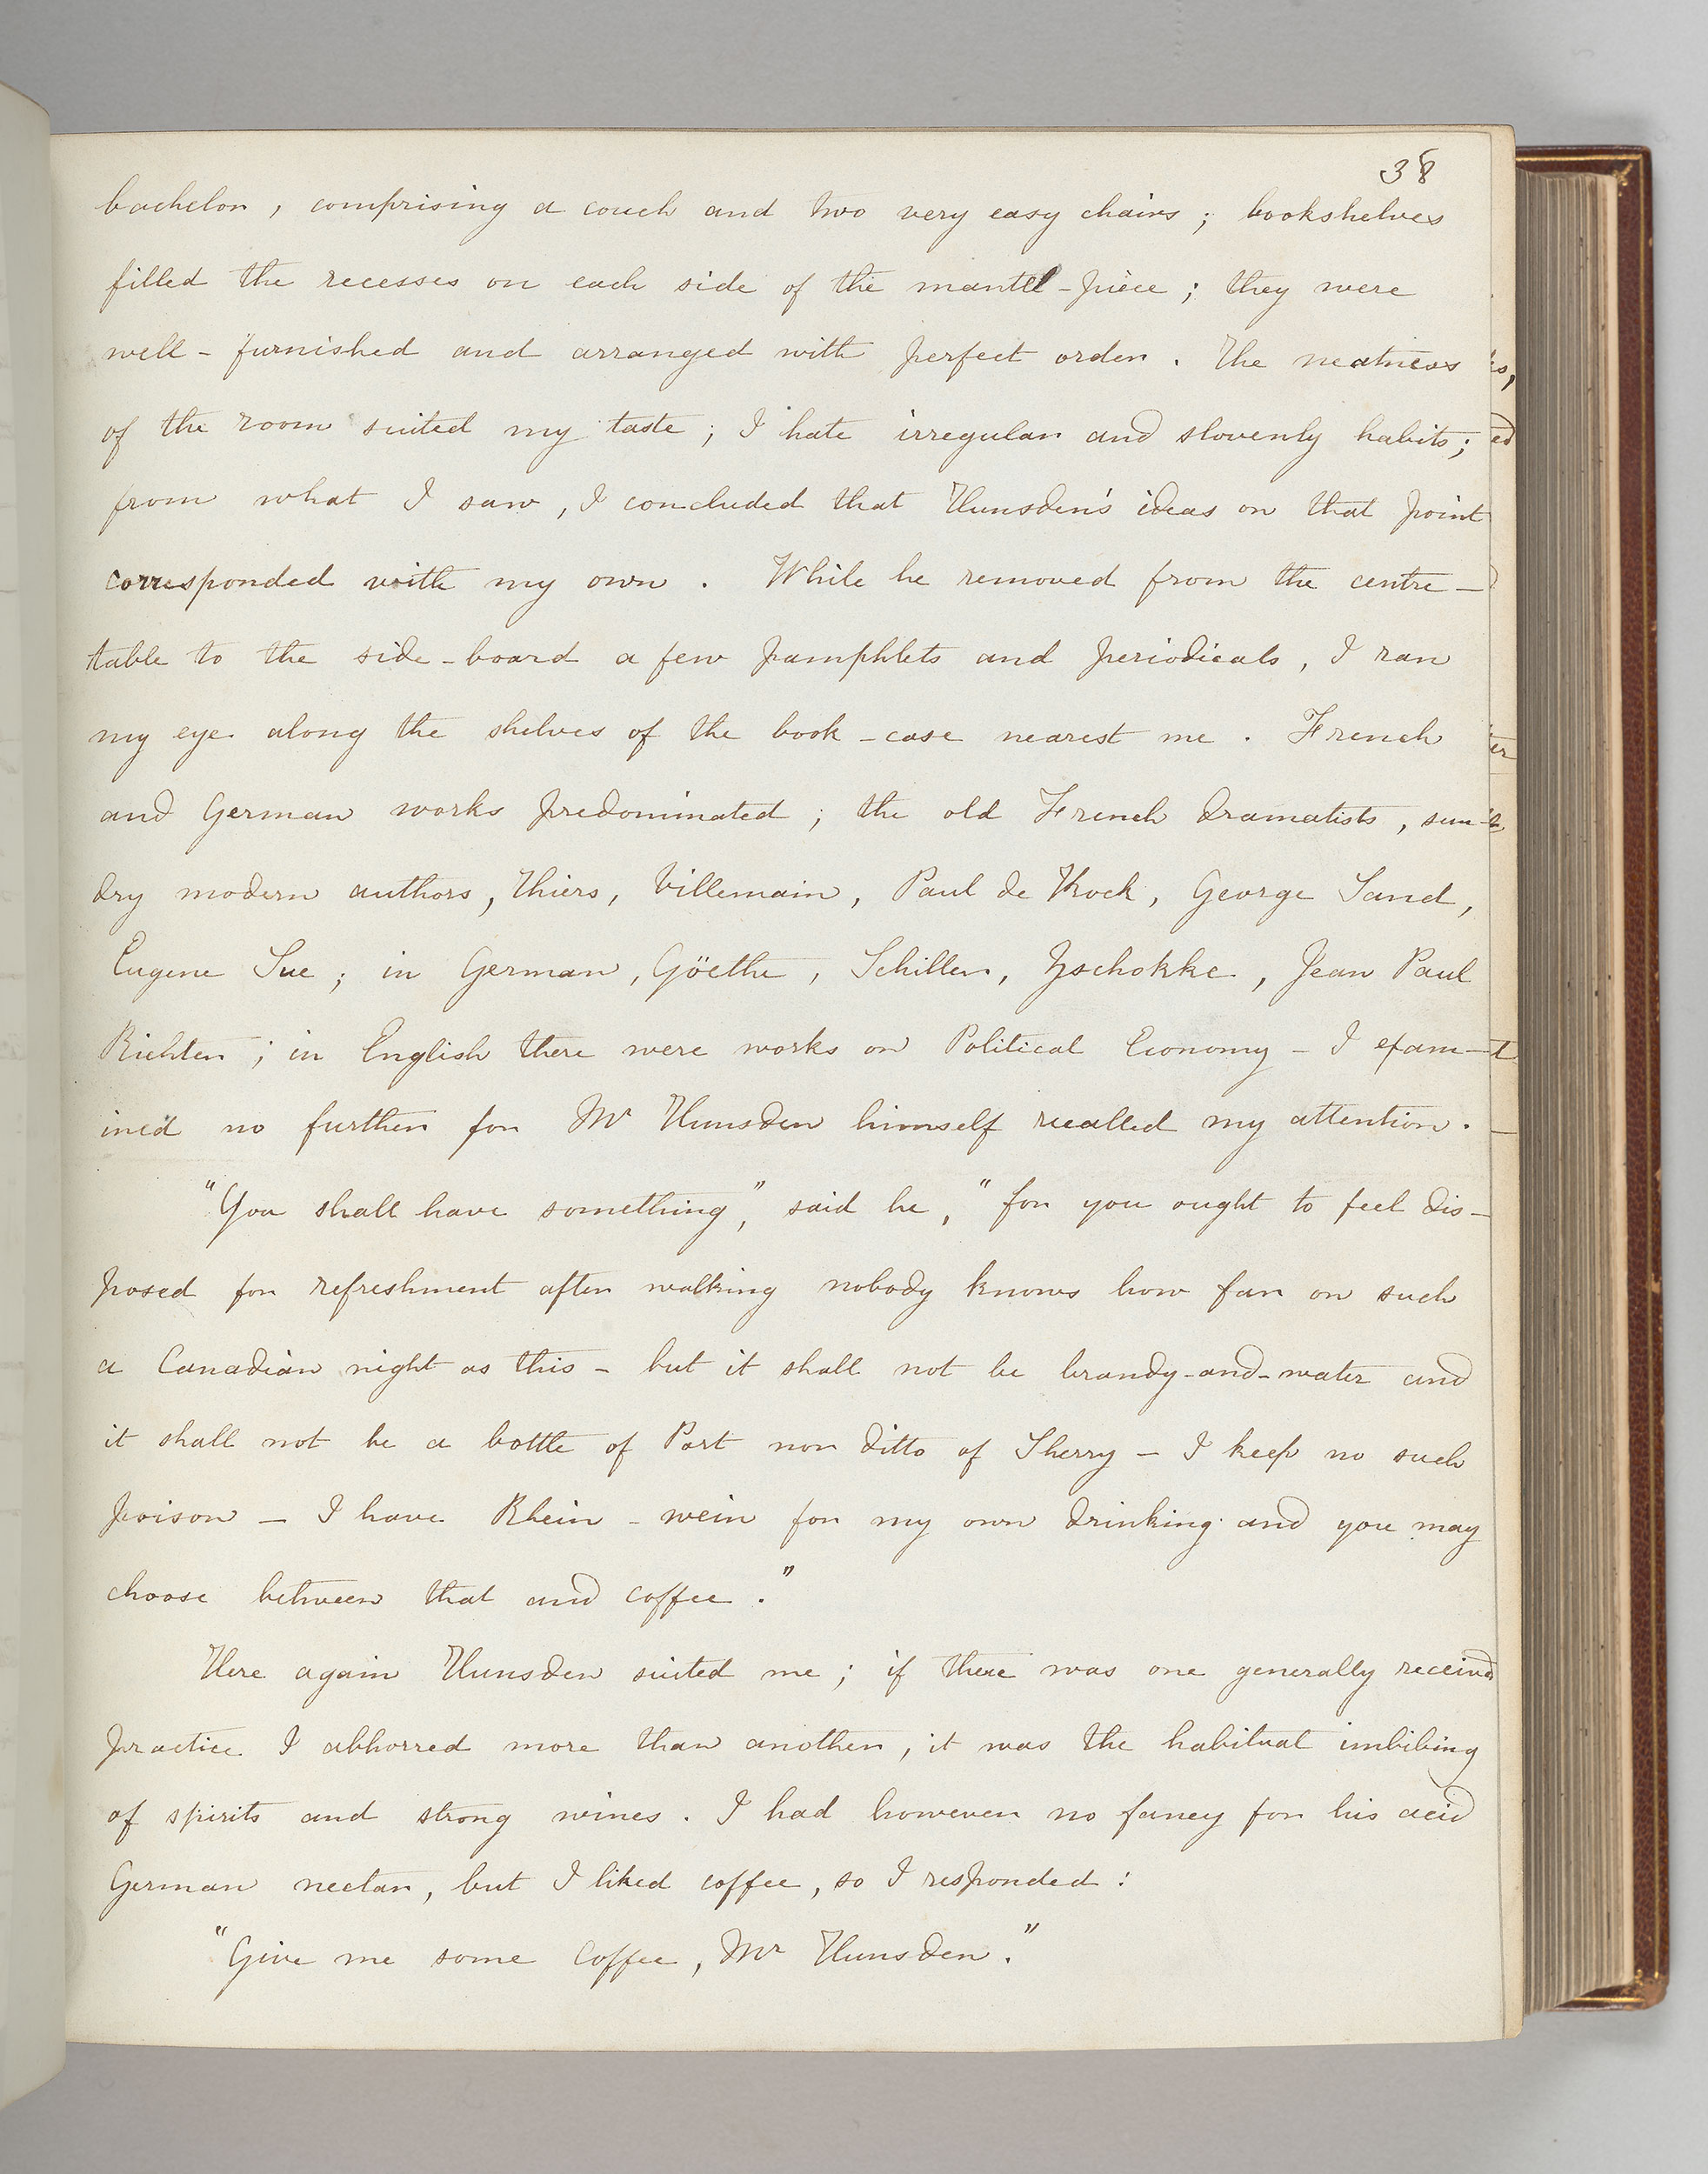 38
bachelor, comprising a couch and two very easy chairs; bookshelves
filled the recesses on each side of the mantel-piece; they were
well-furnished and arranged with perfect order. The neatness
of the room suited my taste; I hate irregular and slovenly habits;
from what I saw, I concluded that Hunsden's ideas on that point
corresponded with my own. While he removed from the centre-
table to the side-board a few pamphlets and periodicals, I ran
my eye along the shelves of the book-case nearest me. French
and German works predominated; the old French dramatists, sun-
dry modern authors, Thiers, Villemain, Paul de Kock, George Sand,
Eugene Sue; in German, Göethe, Schiller, Zschokke, Jean Paul
Richter; in English there were works on Political Economy - I exam-
ined no further for Mr Hunsden himself recalled my attention.
"You shall have something," said he, "for you ought to feel dis-
posed for refreshment after walking nobody knows how far on such
a Canadian night as this - but it shall not be brandy-and-water and
it shall not be a bottle of Port nor ditto of Sherry - I keep no such
poison - I have Rhein-wein for my own drinking and you may
choose between that and coffee."
Here again Hunsden suited me; if there was one generally received
practice I abhorred more than another, it was the habitual imbibing
of spirits and strong wines. I had however no fancy for his acid
German nectar, but I liked coffee, so I responded:
"Give me some coffee, Mr Hunsden."